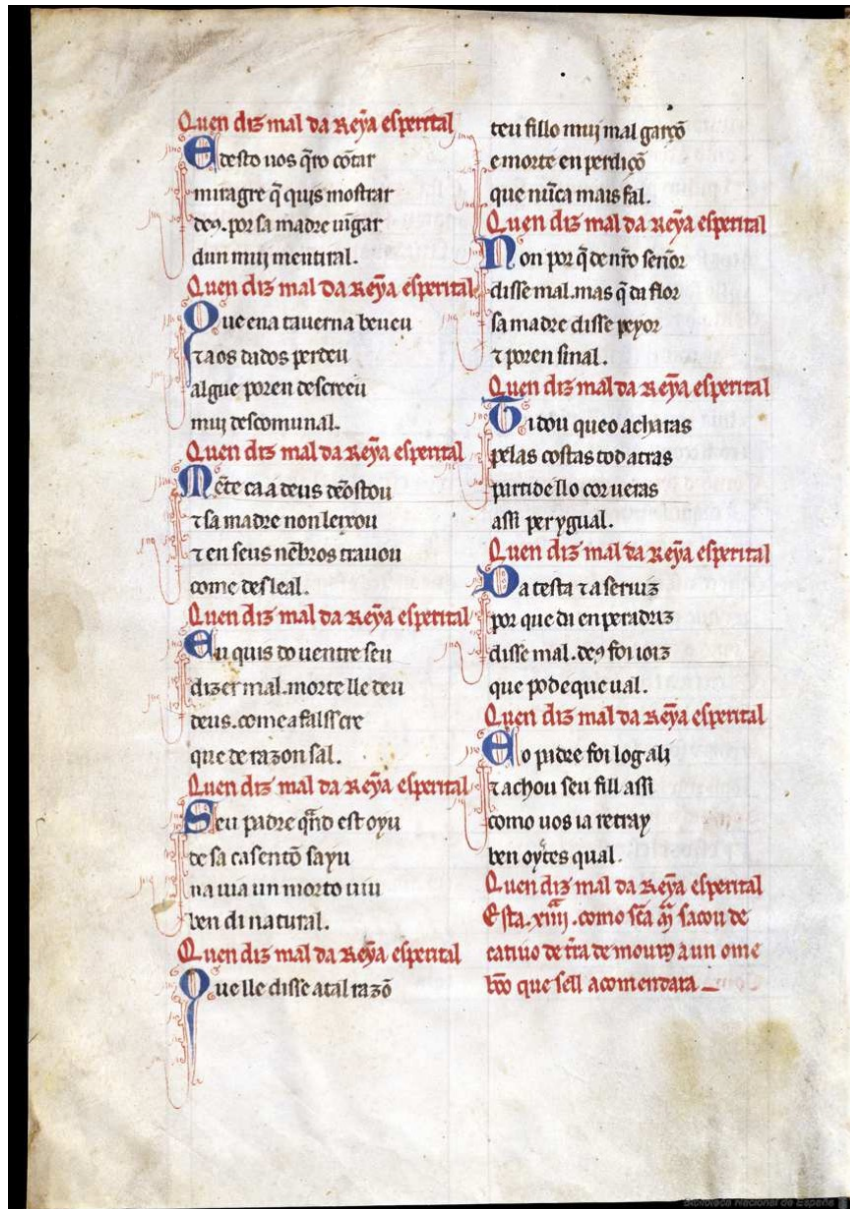 Quen diz mal da Reỹa esperital
E desto uos q̃ro cõtar
miragre q̃ quis mostrar
deꝯ. por sa madre uĩgar
dun mui mentiral.
Quen diz mal da Reỹa esperital
Que ena tauerna beueu
⁊ aos dados perdeu
algue poren descreeu
mui descomunal.
Quen diz mal da Reỹa esperital
Mẽte ca a deus dẽostou
⁊ sa madre non leixou
⁊ en seus nẽbros trauou
come desleal.
Quen diz mal da Reỹa esperital
En quis do uentre seu
dizer mal. morte lle deu
deus. come a falsſ cre
que de razon sal.
Quen diz mal da Reỹa esperital
Seu padre qñdo est oyu
de sa casentõ sayu
na uia un morto uiu
ben di natural.
Quen diz mal da Reỹa esperital
Que lle disse atal razõ
teu fillo mui mal garçõ
e morte en perdiçõ
que nũca mais fal.
Quen diz mal da Reỹa esperital
Non por q̃ de nr̃o señor
disse mal. mas q̃ da flor
sa madre disse peyor
⁊ poren sinal.
Quen diz mal da Reỹa esperital
Ti dou queo acharas
pelas costas tod atras
partide llo cor ueras
assi per ygual.
Quen diz mal da Reỹa esperital
Da testa ⁊ a seruiz
por que da enperadriz
disse mal. deꝯ foi ioiz
que pode que ual.
Quen diz mal da Reỹa esperital
E o padre foi log ali
⁊ achou seu fill assi
como uos ia retray
ben oytes qual.
Quen diz mal da Reỹa esperital
Esta. xiiii. como sc̃a m̃ sacou de
catiuo de tr̃a de mouroꝯ a un ome
bõo que sell acomendara
Biblioteca Nacional de España